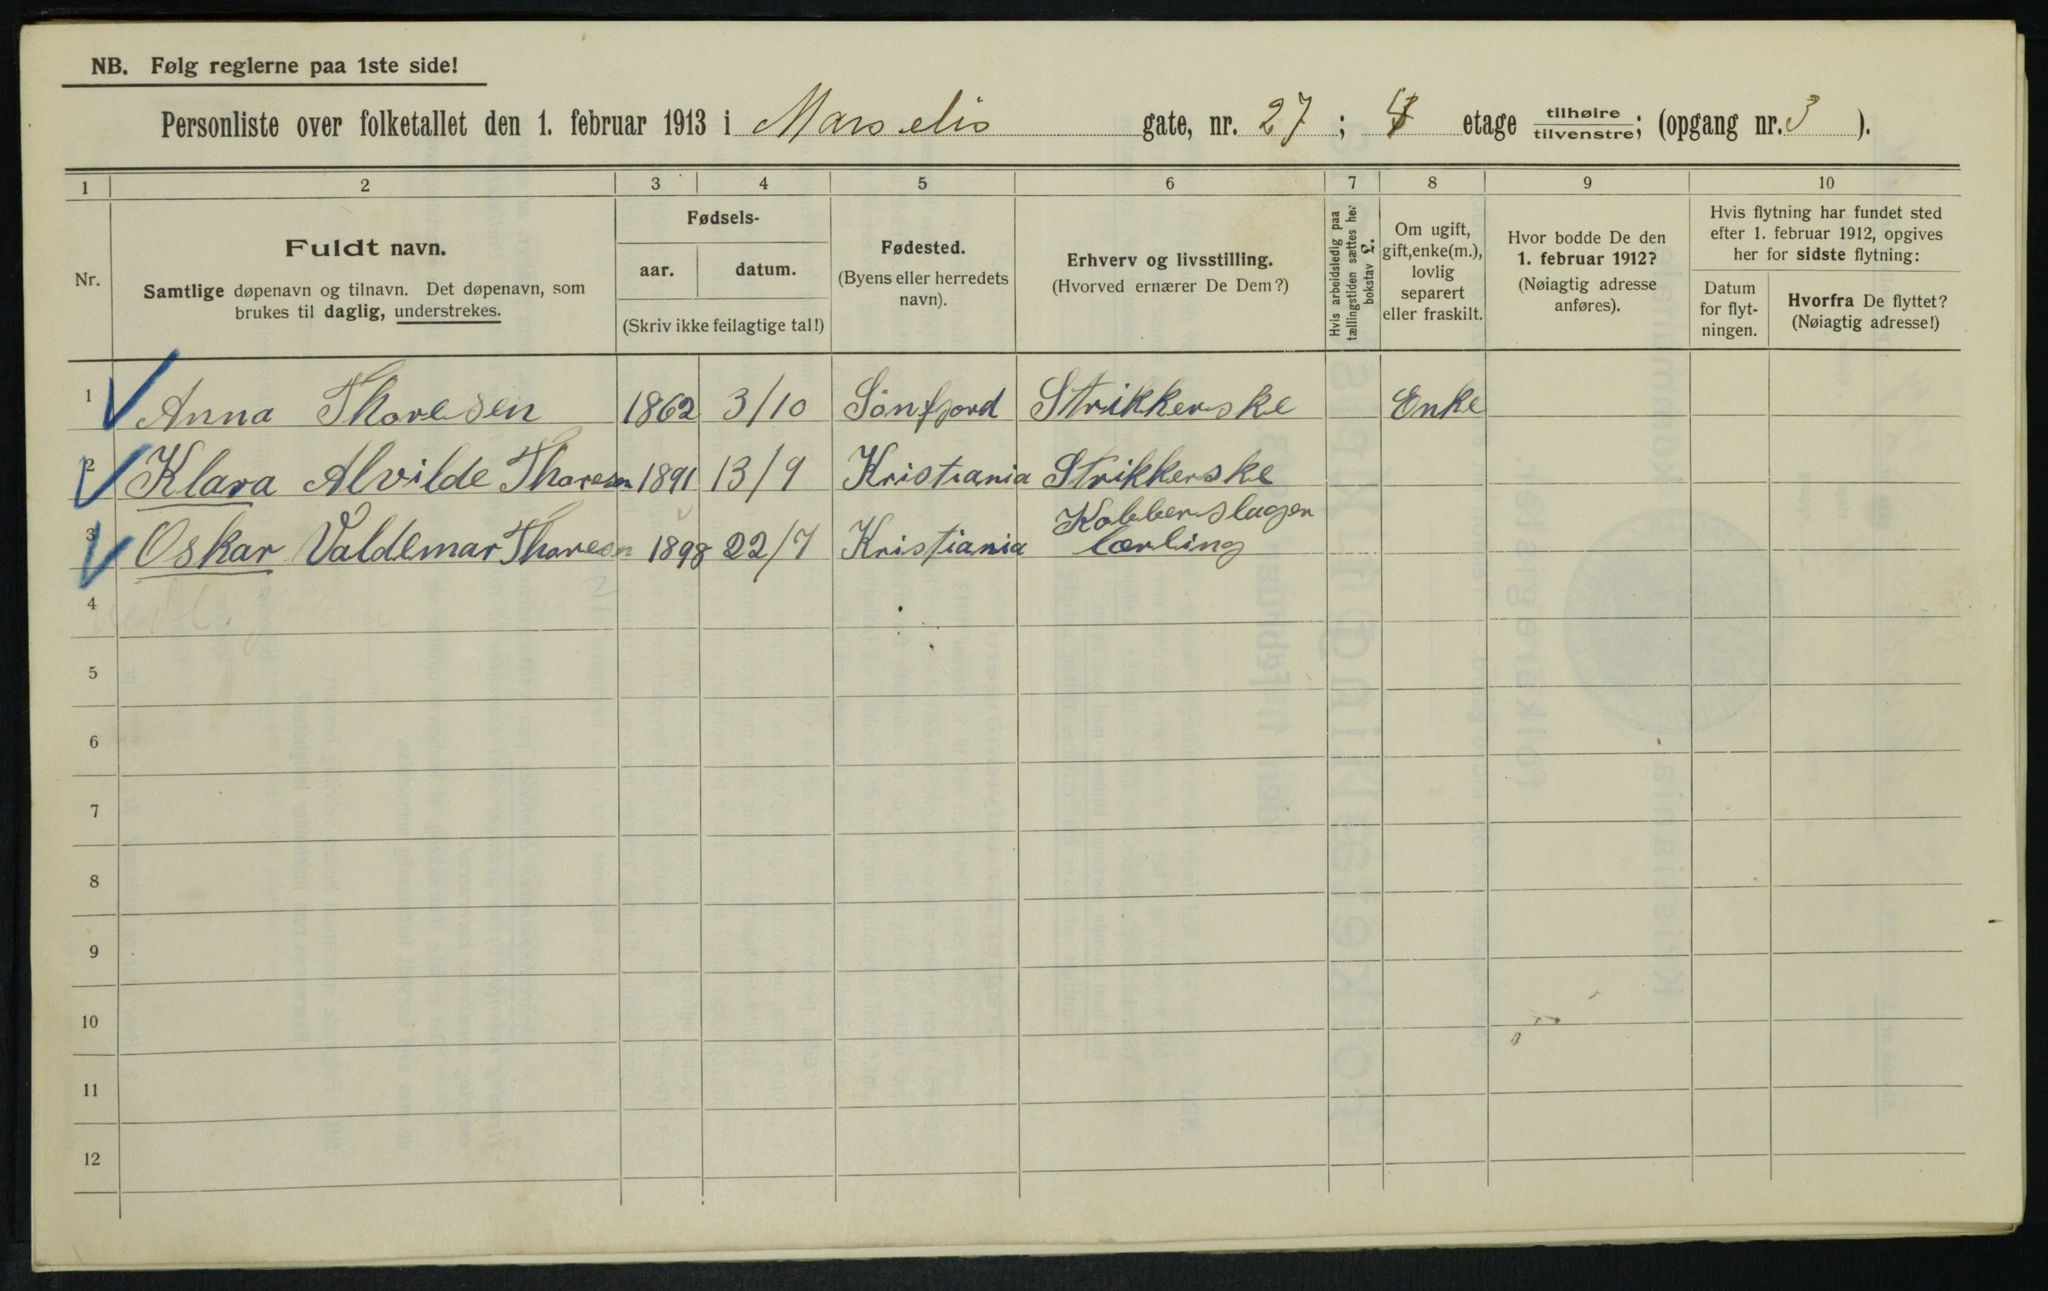 NB. Følg reglerne paa 1ste side!
Personliste over folketallet den 1. februar 1913 i Marselis gate, nr. 27 ; etage tilhøire/tilvenstre; (opgang nr. 3 ).
1 2 3 4 5 6 7 8 9 10
Nr.
Fuldt navn.
Samtlige døpenavn og tilnavn. Det døpenavn, som
brukes til daglig, understrekes.
Fødsels-
aar. datum.
(Skriv ikke feilagtige tal!)
Fødested.
(Byens eller herredets
navn).
Erhverv og livsstilling.
(Hvorved ernærer De Dem?)
Hvis arbeidsledig paa
tællingstiden sættes her
bokstav L.
Om ugift,
gift, enke(m.),
lovlig
separert
eller fraskilt.
Hvor bodde De den
1. februar 1912?
(Nøiagtig adresse
anføres).
Hvis flytning har fundet sted
efter 1. februar 1912, opgives
her for sidste flytning:
Datum
for flyt-
ningen.
Hvorfra De flyttet?
(Nøiagtig adresse!)
1 Anna Thoresen 1862 3/10 Sönfjord Strikkerske Enke
2 Klara Alvilde Thoresen 1891 13/9 Kristiania Strikkerske
3 Oskar Valdemar Thoresen 1898 22/7 Kristiania Kobberslager
lærling
4
5
6
7
8
9
10
11
12